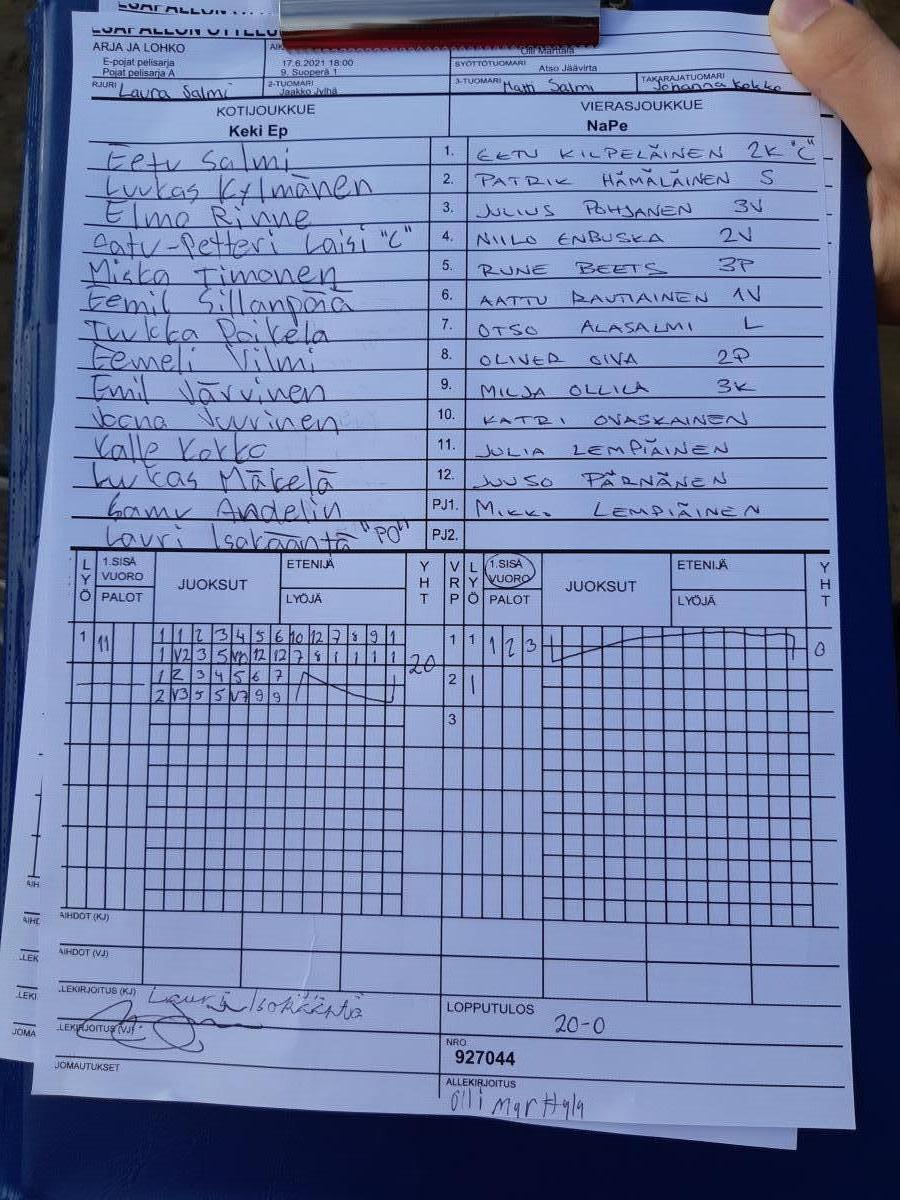 ARJA JA LOHKO
E-pojat pelisarja
Pojat pelisarja A
17.6.2021 18:00
9. Suoperä 1
Olli Marttala
SYÖTTÖTUOMARI Atso Jäävirta
RJURI Laura Salmi
2-TUOMARI Jaakko Jylhä
3-TUOMARI Matti Salmi
TAKARAJATUOMARI Johanna Kokko
KOTIJOUKKUE VIERASJOUKKUE
Keki Ep NaPe
Eetu Salmi 1. EETU KILPELÄINEN 2K "C"
Luukas Kylmänen 2. PATRIK HÄMÄLÄINEN S
Elmo Rinne 3. JULIUS POHJANEN 3V
Satu-Petteri Laisi "C" 4. NIILO ENBUSKA 2V
Miska Timonen 5. RUNE BEETS 3P
Eemil Sillanpää 6. AATTU RAUTIAINEN 1V
Tuukka Poikela 7. OTSO ALASALMI L
Eemeli Vilmi 8. OLIVER OIVA 2P
Emil Järvinen 9. MILJA OLLILA 3K
Joona Vuorinen 10. KATRI OVASKAINEN
Kalle Kokko 11. JULIA LEMPIÄINEN
Lukas Mäkelä 12. JUUSO PÄRNÄNEN
Samu Andelin PJ1. MIKKO LEMPIÄINEN
Lauri Isokääntä "PO" PJ2.
LYÖ 1.SISÄ VUORO PALOT JUOKSUT ETENIJÄ LYÖJÄ YHT VRP LYÖ 1.SISÄ VUORO PALOT JUOKSUT ETENIJÄ LYÖJÄ YHT
1 11 1 1 2 3 4 5 6 10 12 7 8 9 1 1 1 1 2 3 0
20
1 2 3 4 5 6 7 2 1
2 V3 5 5 V7 9 9
3
AIHDOT (KJ)
AIHDOT (VJ)
LEKIRJOITUS (KJ) Lauri Isokääntä
LOPPUTULOS
20-0
LEKIRJOITUS (VJ)
NRO
927044
JOMAUTUKSET
ALLEKIRJOITUS
Olli Marttala